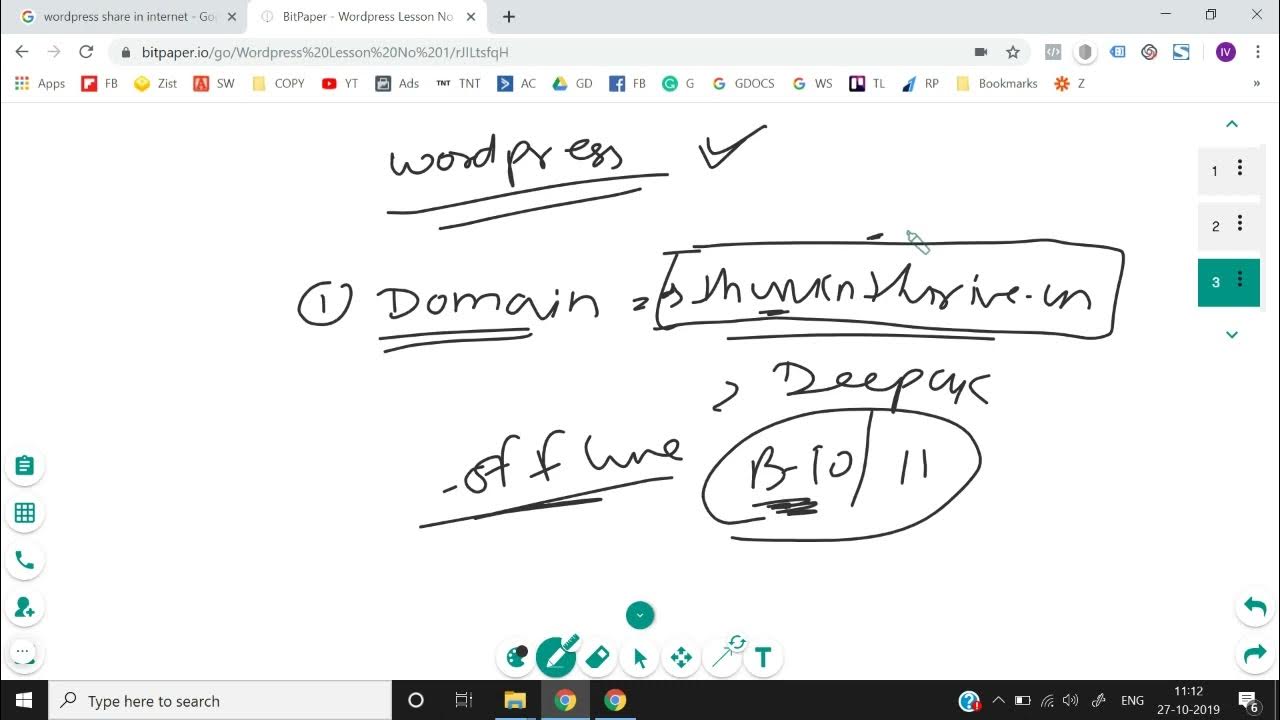 wordpress share in internet - Go
BitPaper - Wordpress Lesson No
bitpaper.io/go/Wordpress%20Lesson%20No%201/rJlLtsfqH
IV
Apps FB Zist SW COPY YT Ads TNT TNT AC GD FB G GDOCS WS TL RP Bookmarks Z »
wordpress
1
2
① Domain => thinknthrive.in
3
Deepak
- off line B-10/11
T
Type here to search
ENG
11:12
27-10-2019
6